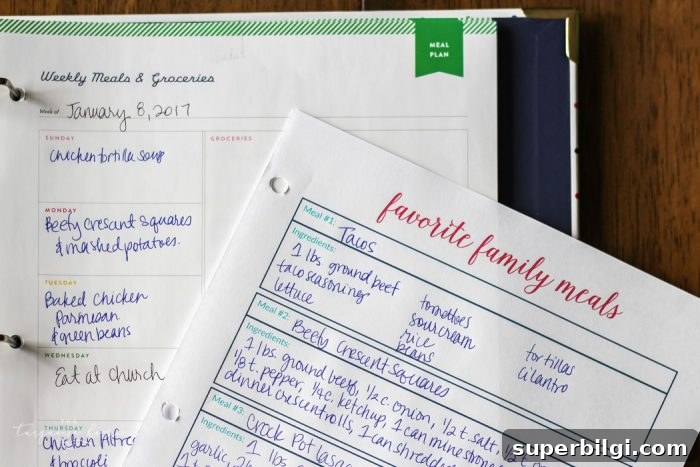 MEAL
PLAN
Weekly Meals & Groceries
Week of January 8, 2017
SUNDAY
Chicken tortilla soup
GROCERIES
MONDAY
Beefy Crescent Squares
& mashed potatoes.
TUESDAY
Baked Chicken
Parmesan
& green beans
WEDNESDAY
Eat at Church
THURSDAY
Chicken Alfredo
& broccoli
favorite family meals
Meal #1: Tacos
Ingredients:
1 lbs. ground beef
taco seasoning
lettuce
tomatoes
sour cream
rice
beans
tortillas
cilantro
Meal #2: Beefy Crescent Squares
Ingredients:
1 lbs. ground beef, 1/2 c. onion, 1/2 t. salt,
1/8 t. pepper, 1/4 c. ketchup, 1 can
dinner crescent rolls, 1 can
Meal #3: Crock Pot
Ingredients:
garlic,
superbilgi.com